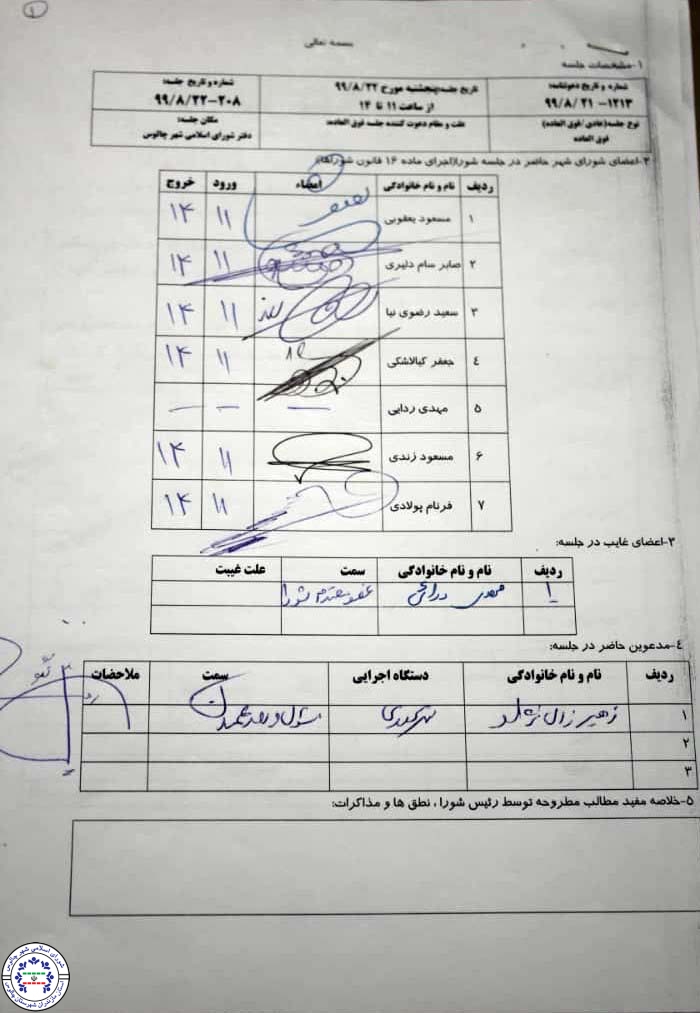 ۱
بسمه تعالی
۱-مشخصات جلسه
شماره و تاریخ دعوتنامه: ۹۹/۸/۲۱ -۱۲۱۳
تاریخ جلسه:پنجشنبه مورخ ۹۹/۸/۲۲ از ساعت ۱۱ تا ۱۴
شماره و تاریخ جلسه: ۹۹/۸/۲۲-۲۰۸
نوع جلسه(عادی/فوق العاده) فوق العاده
علت و مقام دعوت کننده جلسه فوق العاده:
مکان جلسه: دفتر شورای اسلامی شهر چالوس
۲-اعضای شورای شهر حاضر در جلسه شورا(اجرای ماده ۱۶ قانون شوراها)
ردیف نام و نام خانوادگی امضاء ورود خروج
۱ مسعود یعقوبی ۱۱ ۱۴
۲ صابر سام دلیری ۱۱ ۱۴
۳ سعید رضوی نیا ۱۱ ۱۴
۴ جعفر کیالاشکی ۱۱ ۱۴
۵ مهدی ردایی — — —
۶ مسعود زندی ۱۱ ۱۴
۷ فرنام پولادی ۱۱ ۱۴
۳-اعضای غایب در جلسه:
ردیف نام و نام خانوادگی سمت علت غیبت
۱ مهدی عضو محترم شورا
٤-مدعوین حاضر در جلسه:
ردیف نام و نام خانوادگی دستگاه اجرایی سمت ملاحضات
۱ زهیر زال نژاد شهرداری مسئول
۲
۳
۵-خلاصه مفید مطالب مطروحه توسط رئیس شورا ، نطق ها و مذاکرات:
شورای اسلامی شهر چالوس
استان مازندران شهرستان چالوس